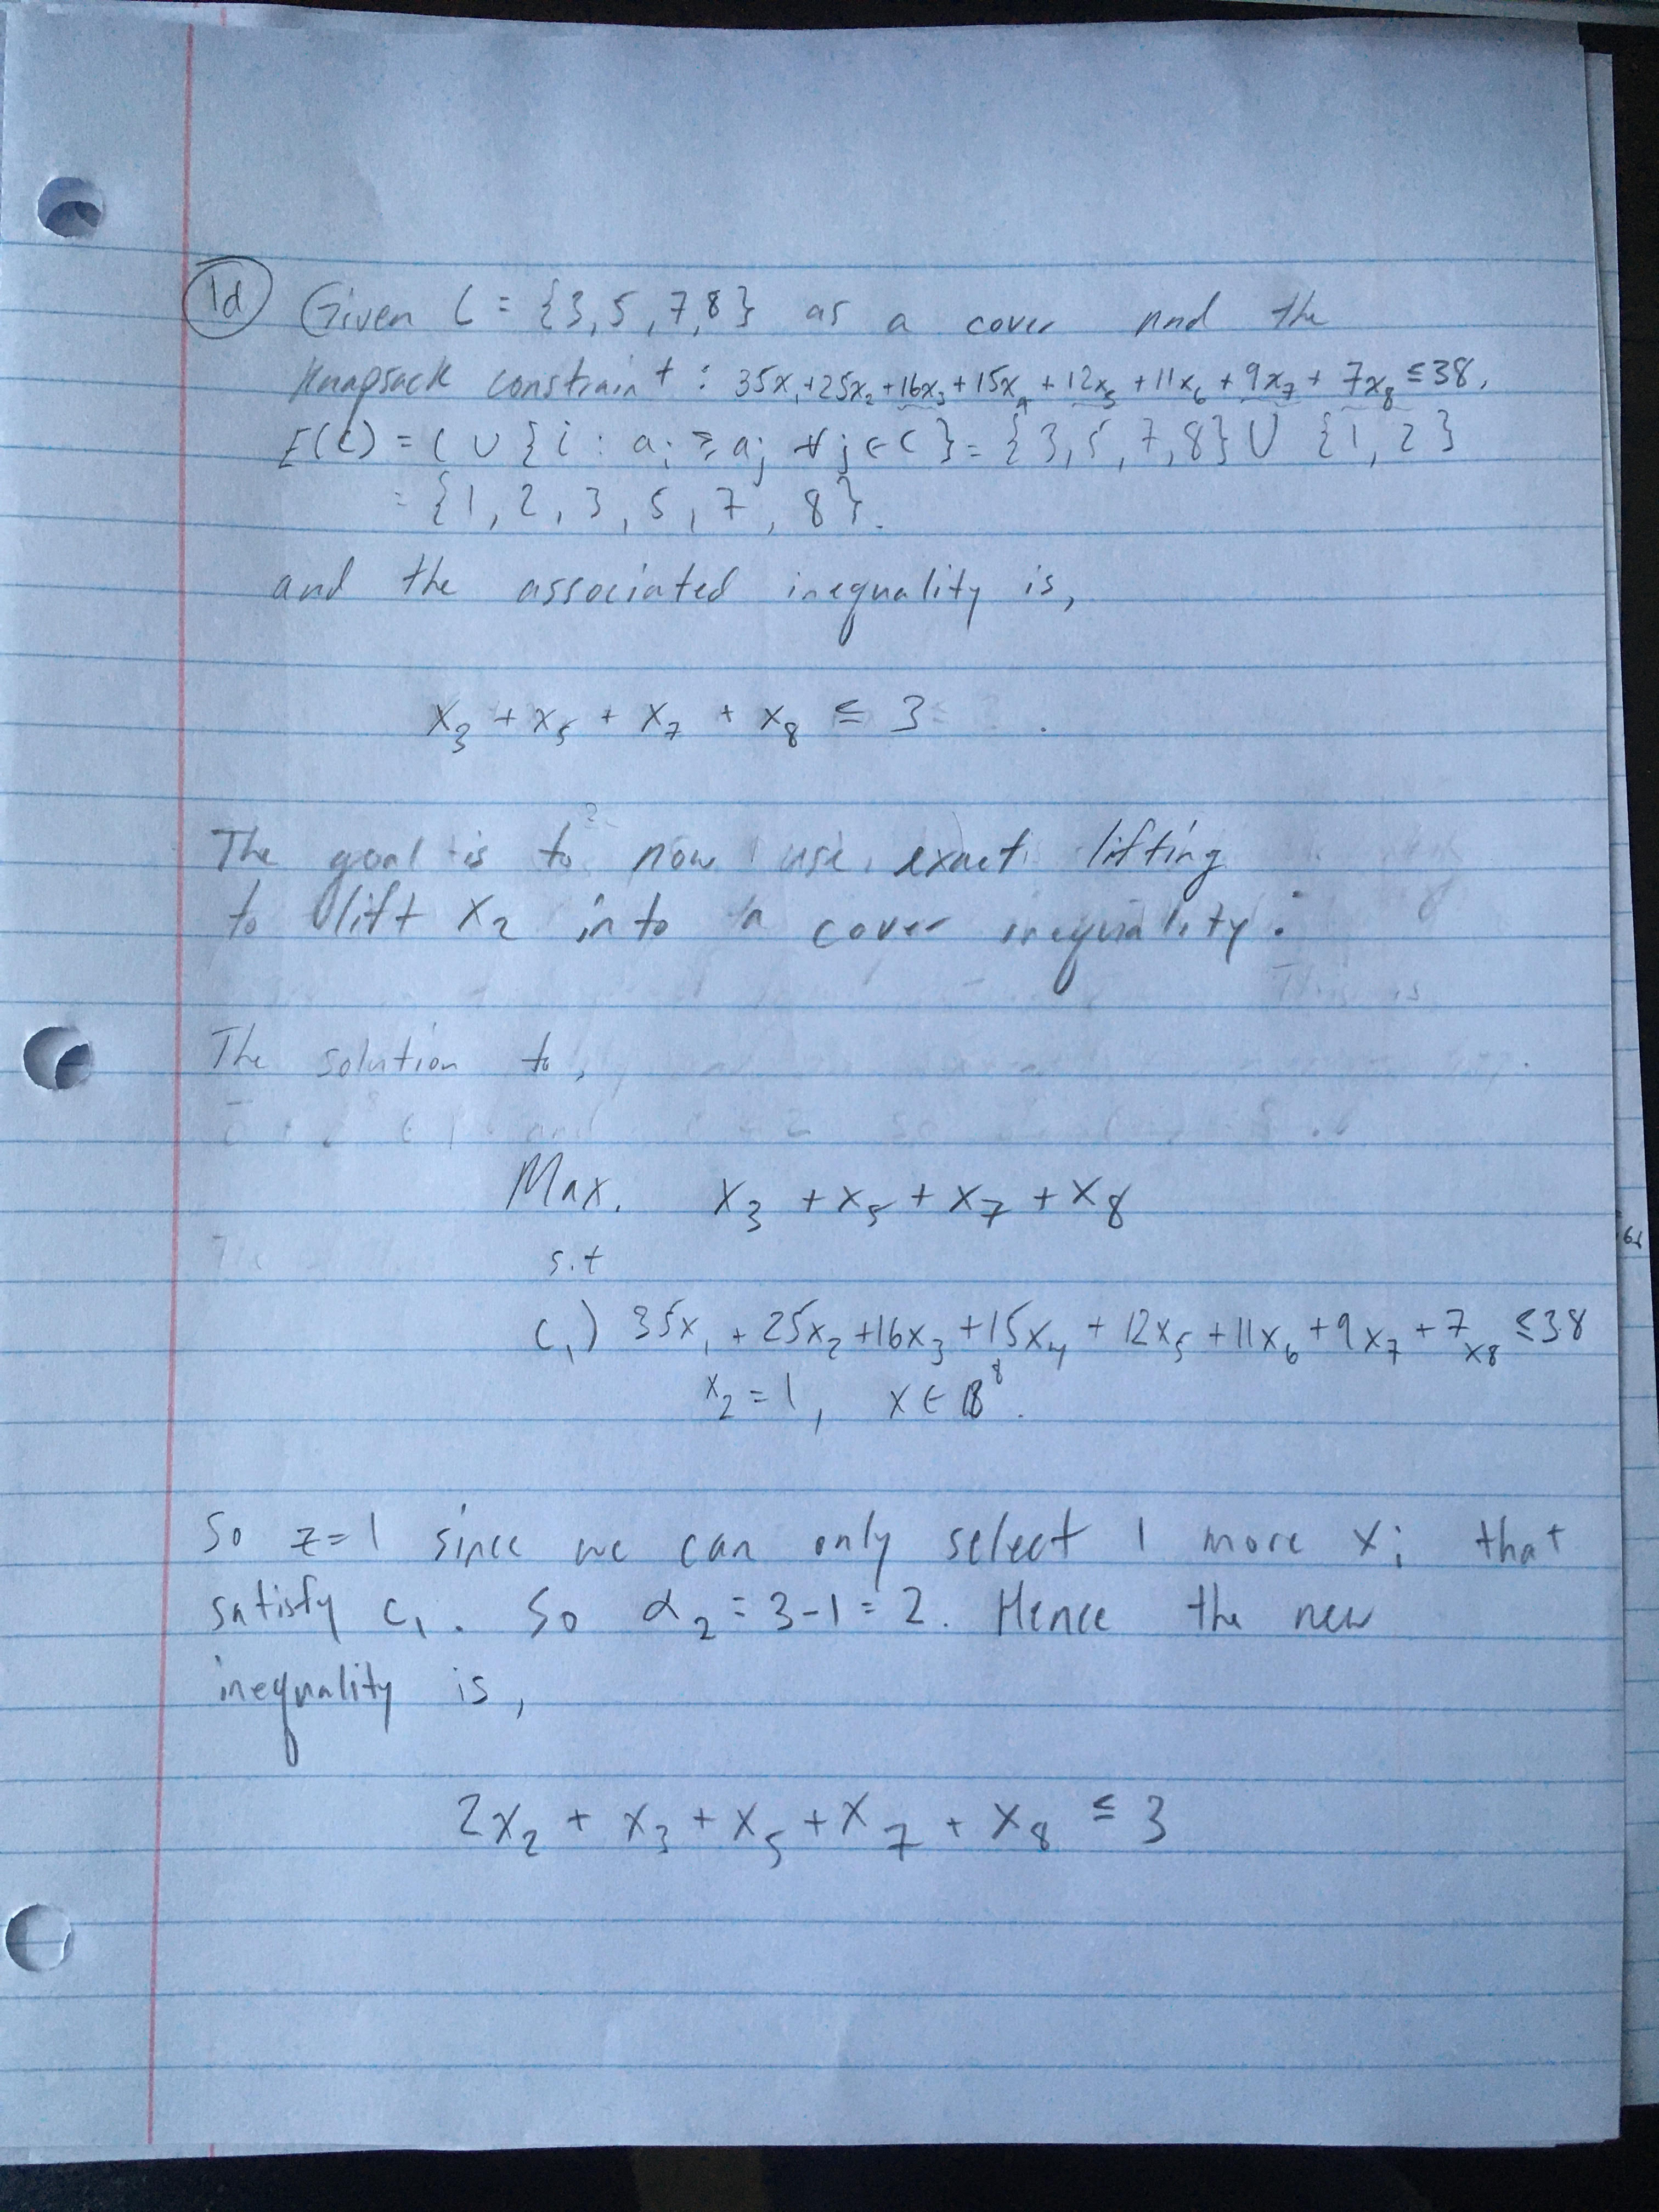 1d Given C = {3, 5, 7, 8} as a cover and the
Knapsack constraint : 35x₁ + 25x₂ + 16x₃ + 15x₄ + 12x₅ + 11x₆ + 9x₇ + 7x₈ ≤ 38,
E(C) = C ∪ {i : aᵢ ≥ aⱼ ∀ j ∈ C} = {3, 5, 7, 8} ∪ {1, 2}
= {1, 2, 3, 5, 7, 8}.
and the associated inequality is,
x₃ + x₅ + x₇ + x₈ ≤ 3 .
The goal is to now use exact lifting
to lift x₂ into a cover inequality.
The solution to,
Max. x₃ + x₅ + x₇ + x₈
s.t
C₁) 35x₁ + 25x₂ + 16x₃ + 15x₄ + 12x₅ + 11x₆ + 9x₇ + 7x₈ ≤ 38
x₂ = 1, x ∈ B⁸.
So z = 1 since we can only select 1 more xᵢ that
satisfy C₁. So α₂ = 3 - 1 = 2. Hence the new
inequality is,
2x₂ + x₃ + x₅ + x₇ + x₈ ≤ 3